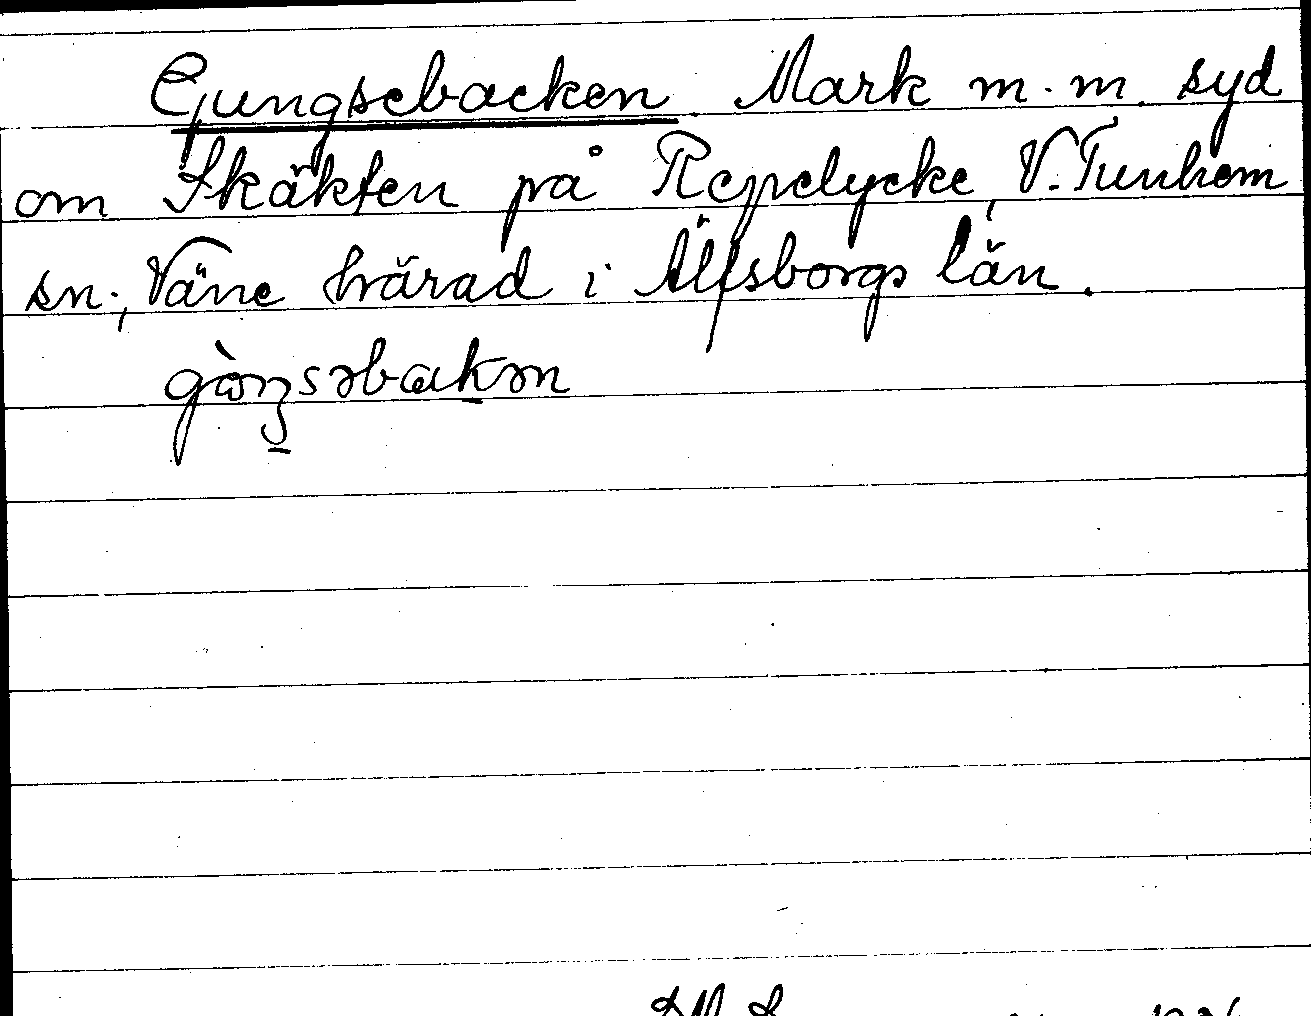 Gungsebacken Mark m.m. syd
om Skäkten på Repelycke, V. Tunhem
sn; Väne härad i Älfsborgs län.